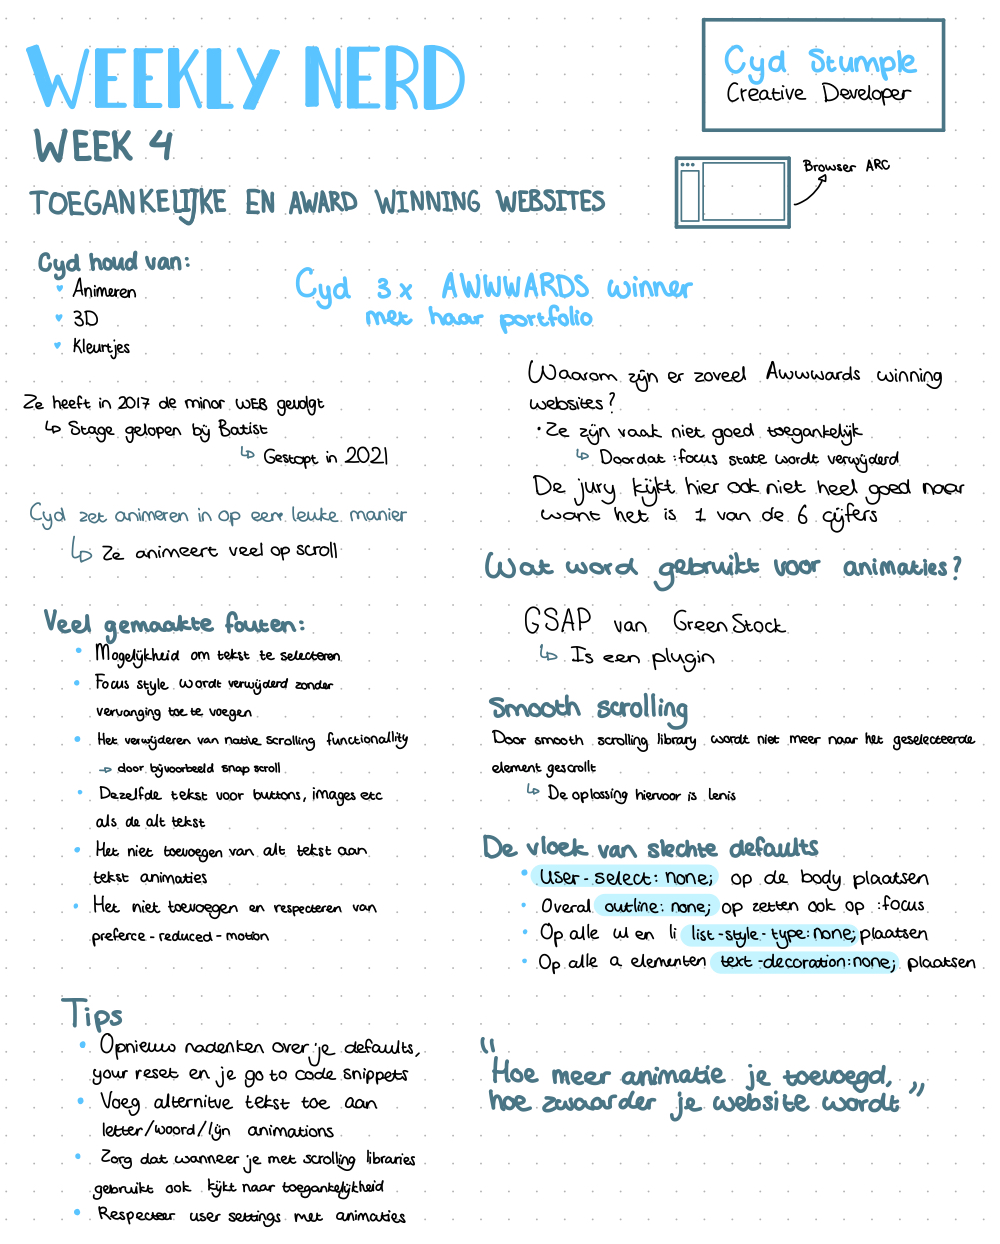 WEEKLY NERD
WEEK 4
TOEGANKELIJKE EN AWARD WINNING WEBSITES
Cyd Stumple
Creative Developer
Browser ARC
Cyd houd van:
♥ Animeren
♥ 3D
♥ Kleurtjes
Cyd 3x AWWWARDS winner
met haar portfolio
Ze heeft in 2017 de minor WEB gevolgt
↳ Stage gelopen bij Batist
↳ Gestopt in 2021
Cyd zet animeren in op een leuke manier
↳ Ze animeert veel op scroll
Veel gemaakte fouten:
• Mogelijkheid om tekst te selecteren
• Focus style wordt verwijderd zonder
vervanging toe te voegen
• Het verwijderen van native scrolling functionality
→ door bijvoorbeeld snap scroll
• Dezelfde tekst voor buttons, images etc
als de alt tekst
• Het niet toevoegen van alt tekst aan
tekst animaties
• Het niet toevoegen en respecteren van
preferce-reduced-motion
Tips
• Opnieuw nadenken over je defaults,
your reset en je go to code snippets
• Voeg alternitve tekst toe aan
letter/woord/lijn animations
• Zorg dat wanneer je met scrolling libraries
gebruikt ook kijkt naar toegankelijkheid
• Respecteer user settings met animaties
Waarom zijn er zoveel Awwwards winning
websites?
• Ze zijn vaak niet goed toegankelijk
↳ Doordat :focus state wordt verwijderd
De jury kijkt hier ook niet heel goed naar
want het is 1 van de 6 cijfers
Wat word gebruikt voor animaties?
GSAP van GreenStock
↳ Is een plugin
Smooth scrolling
Door smooth scrolling library wordt niet meer naar het geselecteerde
element gescrollt
↳ De oplossing hiervoor is lenis
De vloek van slechte defaults
• User-select: none; op de body plaatsen
• Overal outline: none; op zetten ook op :focus
• Op alle ul en li list-style-type: none; plaatsen
• Op alle a elementen text-decoration: none; plaatsen
"Hoe meer animatie je toevoegd,
hoe zwaarder je website wordt"